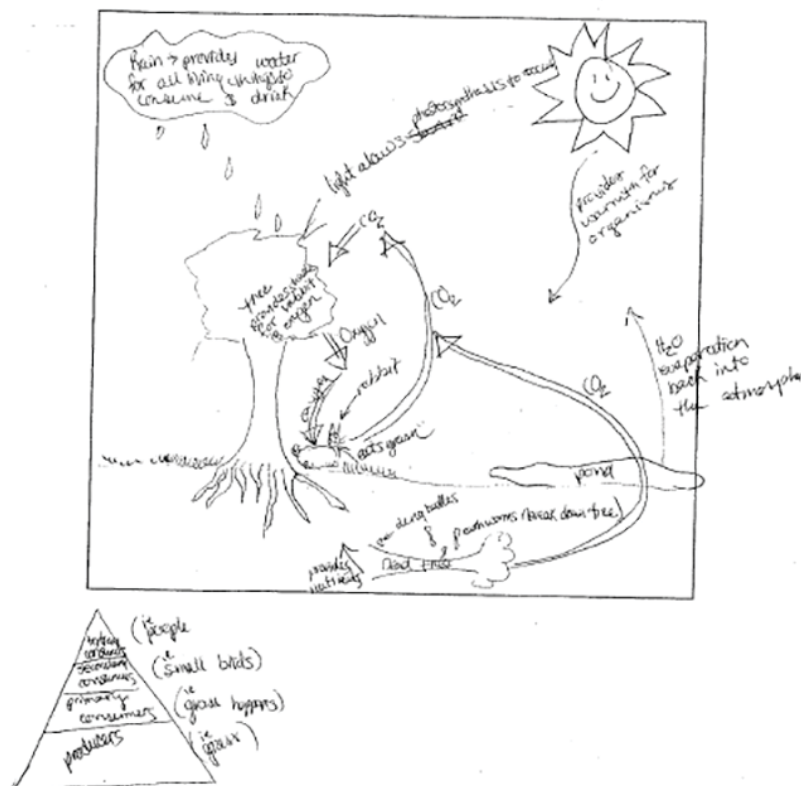 Rain → provides water
for all living things to
consume & drink
light allows photosynthesis to occur
provides
warmth for
organisms
CO₂
CO₂
CO₂
tree
provides
for rabbit
& oxygen
Oxygen
oxygen
rabbit
eats grass
H₂O
evaporation
back into
the atmosphere
pond
earthworms (break down tree)
provides
nutrients
dead tree
tertiary
consumers
(ie
people
secondary
consumers
(ie
small birds)
primary
consumers
(ie
grass hoppers)
producers
(ie
grass)